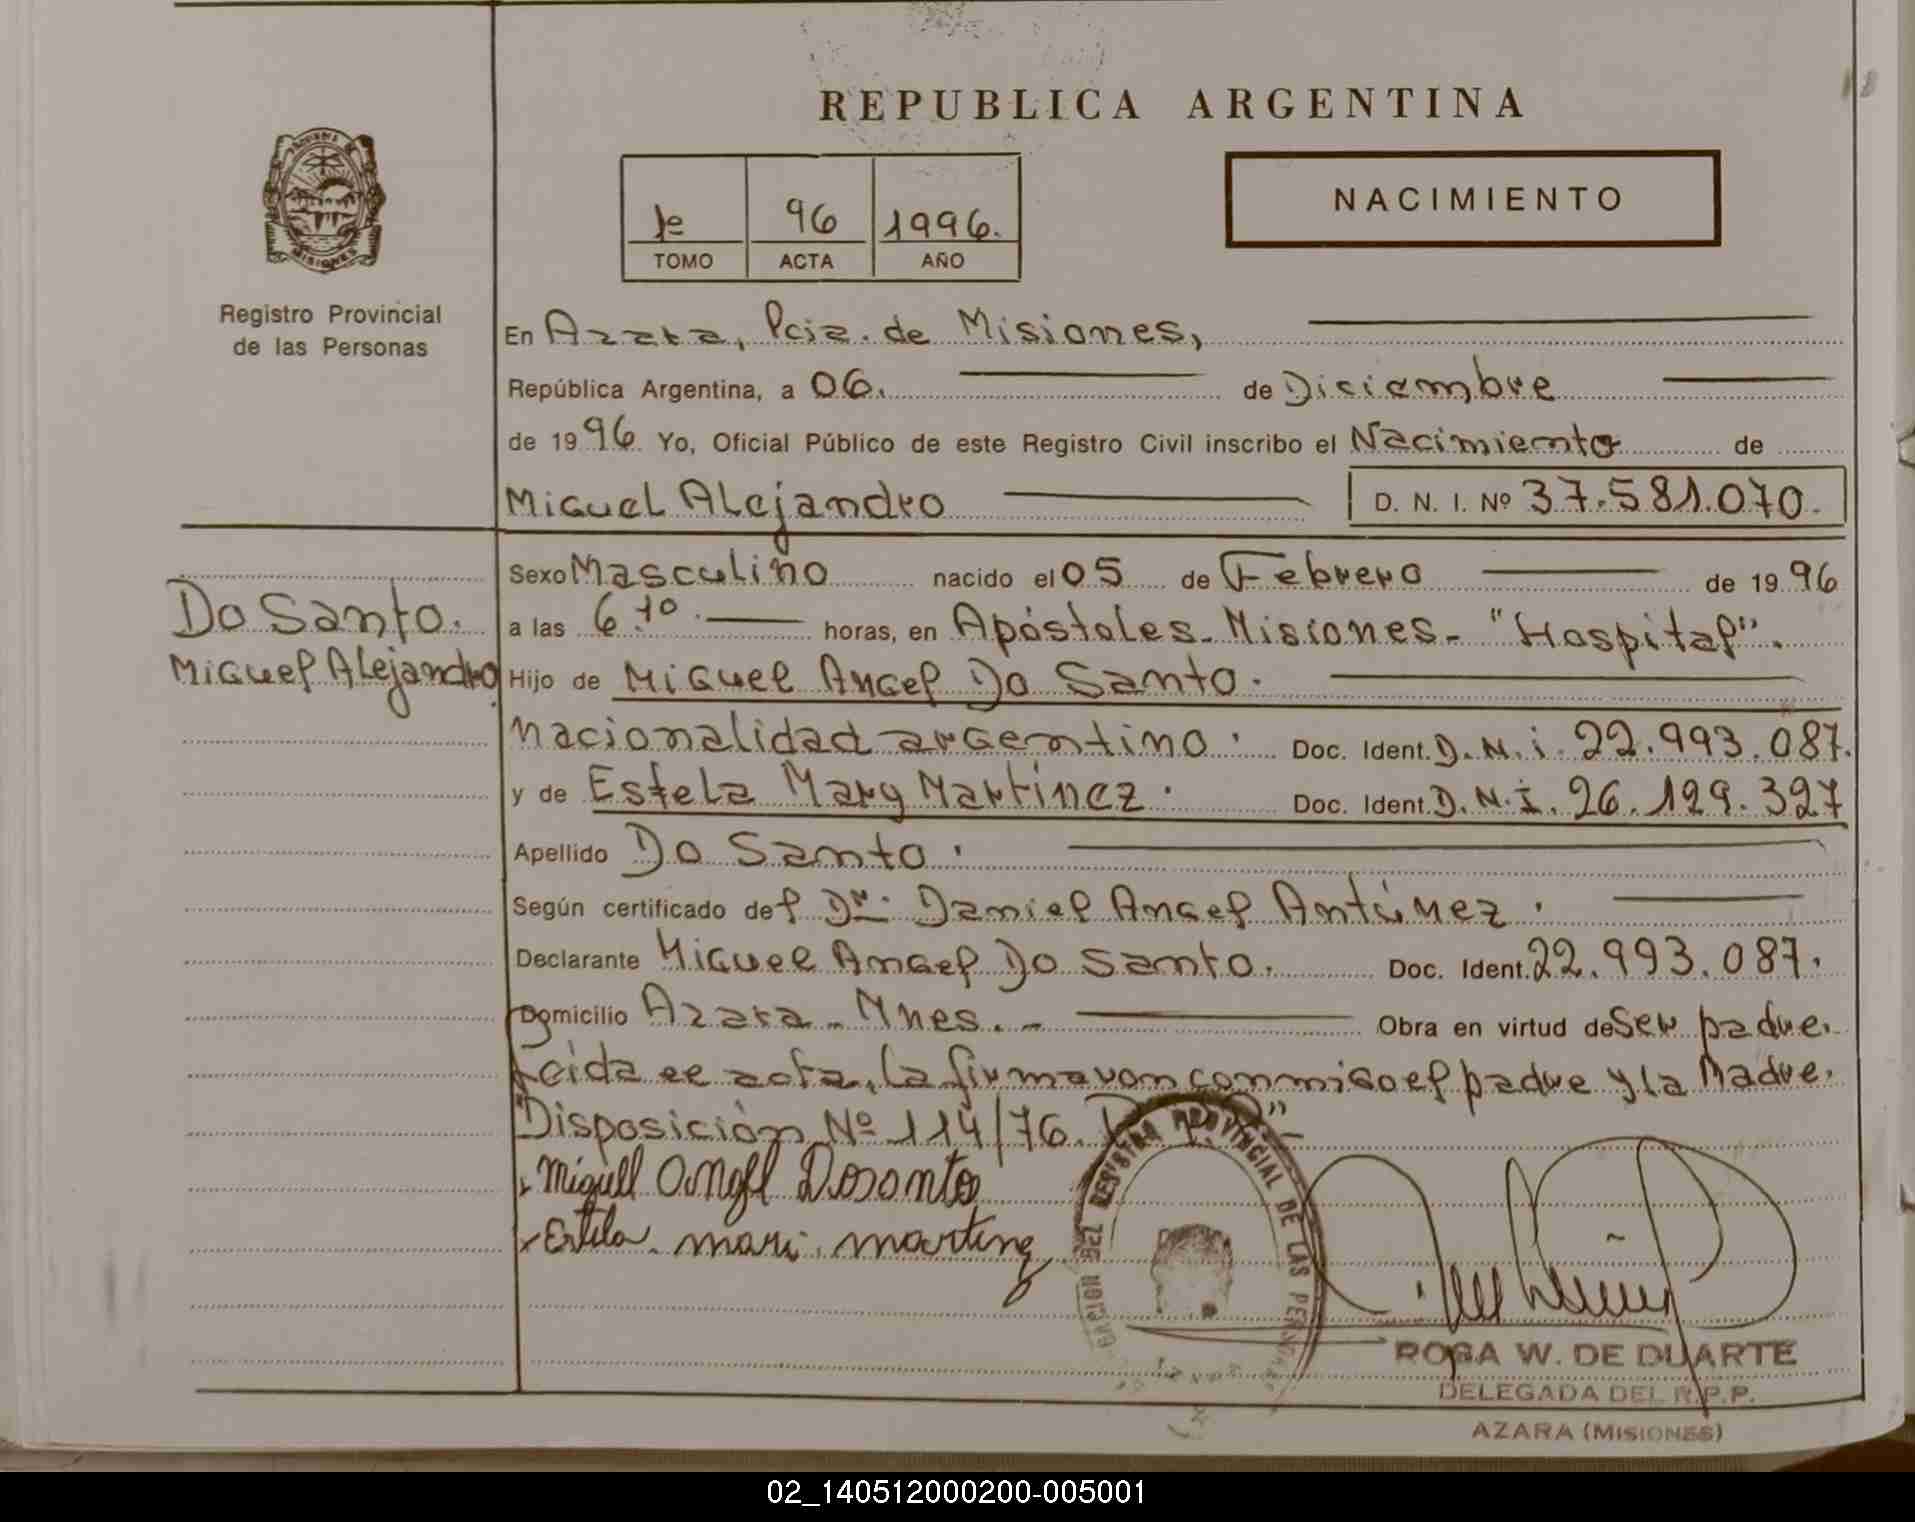 REPUBLICA ARGENTINA
NACIMIENTO
1º 96 1996.
TOMO ACTA AÑO
MISIONES
Registro Provincial
de las Personas
En Azara, Pcia. de Misiones,
República Argentina, a 06. de Diciembre
de 1996 Yo, Oficial Público de este Registro Civil inscribo el Nacimiento de
Miguel Alejandro D. N. I. Nº 37.581.070.
Sexo Masculino nacido el 05 de Febrero de 1996
a las 6.10. horas, en Apóstoles - Misiones - "Hospital".
Do Santo.
Miguel Alejandro.
Hijo de Miguel Angel Do Santo.
nacionalidad argentino. Doc. Ident. D.N.i. 22.993.087.
y de Estela Mary Martínez. Doc. Ident. D.N.I. 26.129.327
Apellido Do Santo.
Según certificado del Dr. Daniel Angel Antúnez.
Declarante Miguel Angel Do Santo. Doc. Ident. 22.993.087.
Domicilio Azara - Mnes. - Obra en virtud de Ser padre.
Leída el acta, la firmaron conmigo el padre y la Madre.
"Disposición Nº 114/76.
Miguel Angel Dosanto
Estela mari martinez
REGISTRO PROVINCIAL DE LAS PERSONAS
ROSA W. DE DUARTE
DELEGADA DEL R.P.P.
AZARA (MISIONES)
02_140512000200-005001